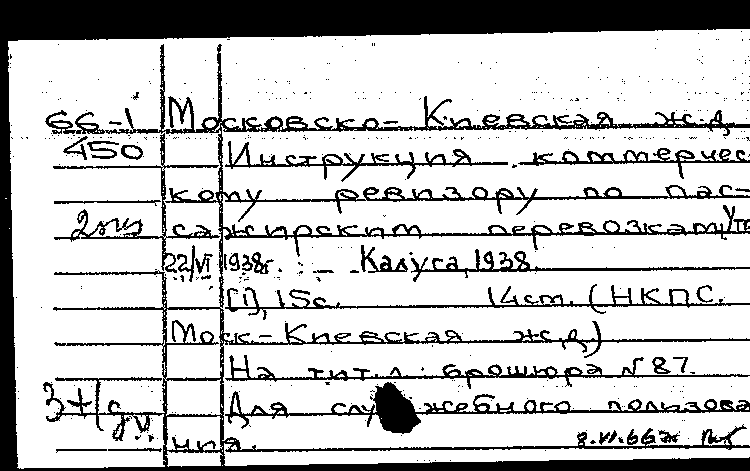 66-1 Московско-Киевская ж.д.
450 Инструкция коммерчес
кому ревизору по пас-
2 экз сажирским перевозкам, Утв
22/VI 1938г. : — Калуга, 1938.
[1], 15с. 14см. (НКПС.
Моск-Киевская ж.д.)
На тит.л: брошюра N 87.
Для служебного пользова
ния.